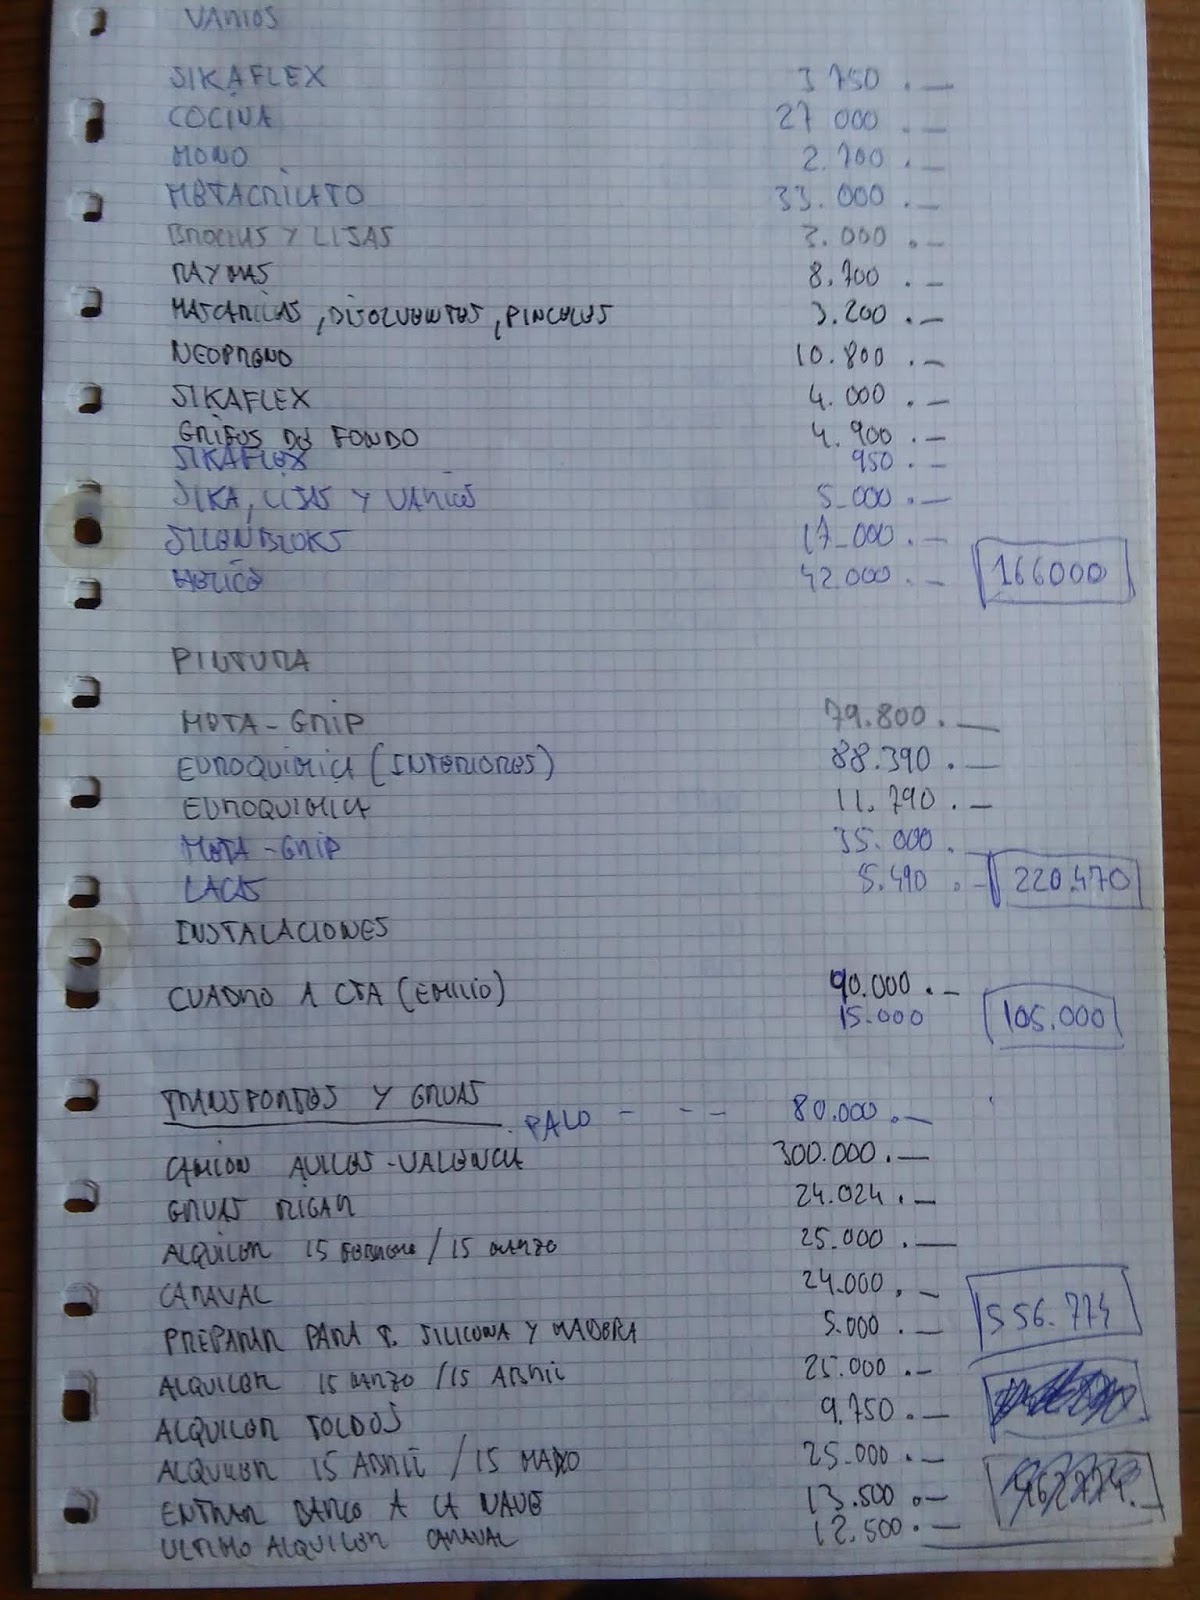 VARIOS
SIKAFLEX 3 750 .—
COCINA 27 000 .—
MONO 2.700 .—
METACRILATO 33.000 .—
BROCHAS Y LIJAS 3.000 .—
RAYMAS 8.700 .—
MASCARILLAS, DISOLVENTES, PINCELES 3.200 .—
NEOPRENO 10.800 .—
SIKAFLEX 4.000 .—
GRIFOS DE FONDO 4.900 .—
SIKAFLEX 950 .—
SIKA, LIJAS Y VARIOS 5_000 .—
SILENBLOKS 17_000 .—
HELICE 42.000 .— 166000
PINTURA
MOTA-GRIP 79.800 .—
EUROQUIMICA (INTERIORES) 88.390 .—
EUROQUIMICA 11.790 .—
MOTA-GRIP 35.000 .
LACAS 5.490 .— 220.470
INSTALACIONES
CUADRO A CTA (EMILIO) 90.000 .—
15.000 105.000
TRANSPORTES Y GRUAS
. PALO - -- 80.000 .—
CAMION AVILES-VALENCIA 300.000 .—
GRUAS RIGAR 24.024 .—
ALQUILER 15 FEBRERO / 15 MARZO 25.000 .—
CARAVAL 24.000 .—
PREPARAR PARA P. SILICONA Y MADERA 5.000 .— 556.774
ALQUILER 15 MARZO / 15 ABRIL 25.000 .—
ALQUILER TOLDOS 9.750 .—
ALQUILER 15 ABRIL / 15 MAYO 25.000 .—
ENTRAR BARCO A LA NAVE 13.500 .—
ULTIMO ALQUILER CARAVAL 12.500 .—